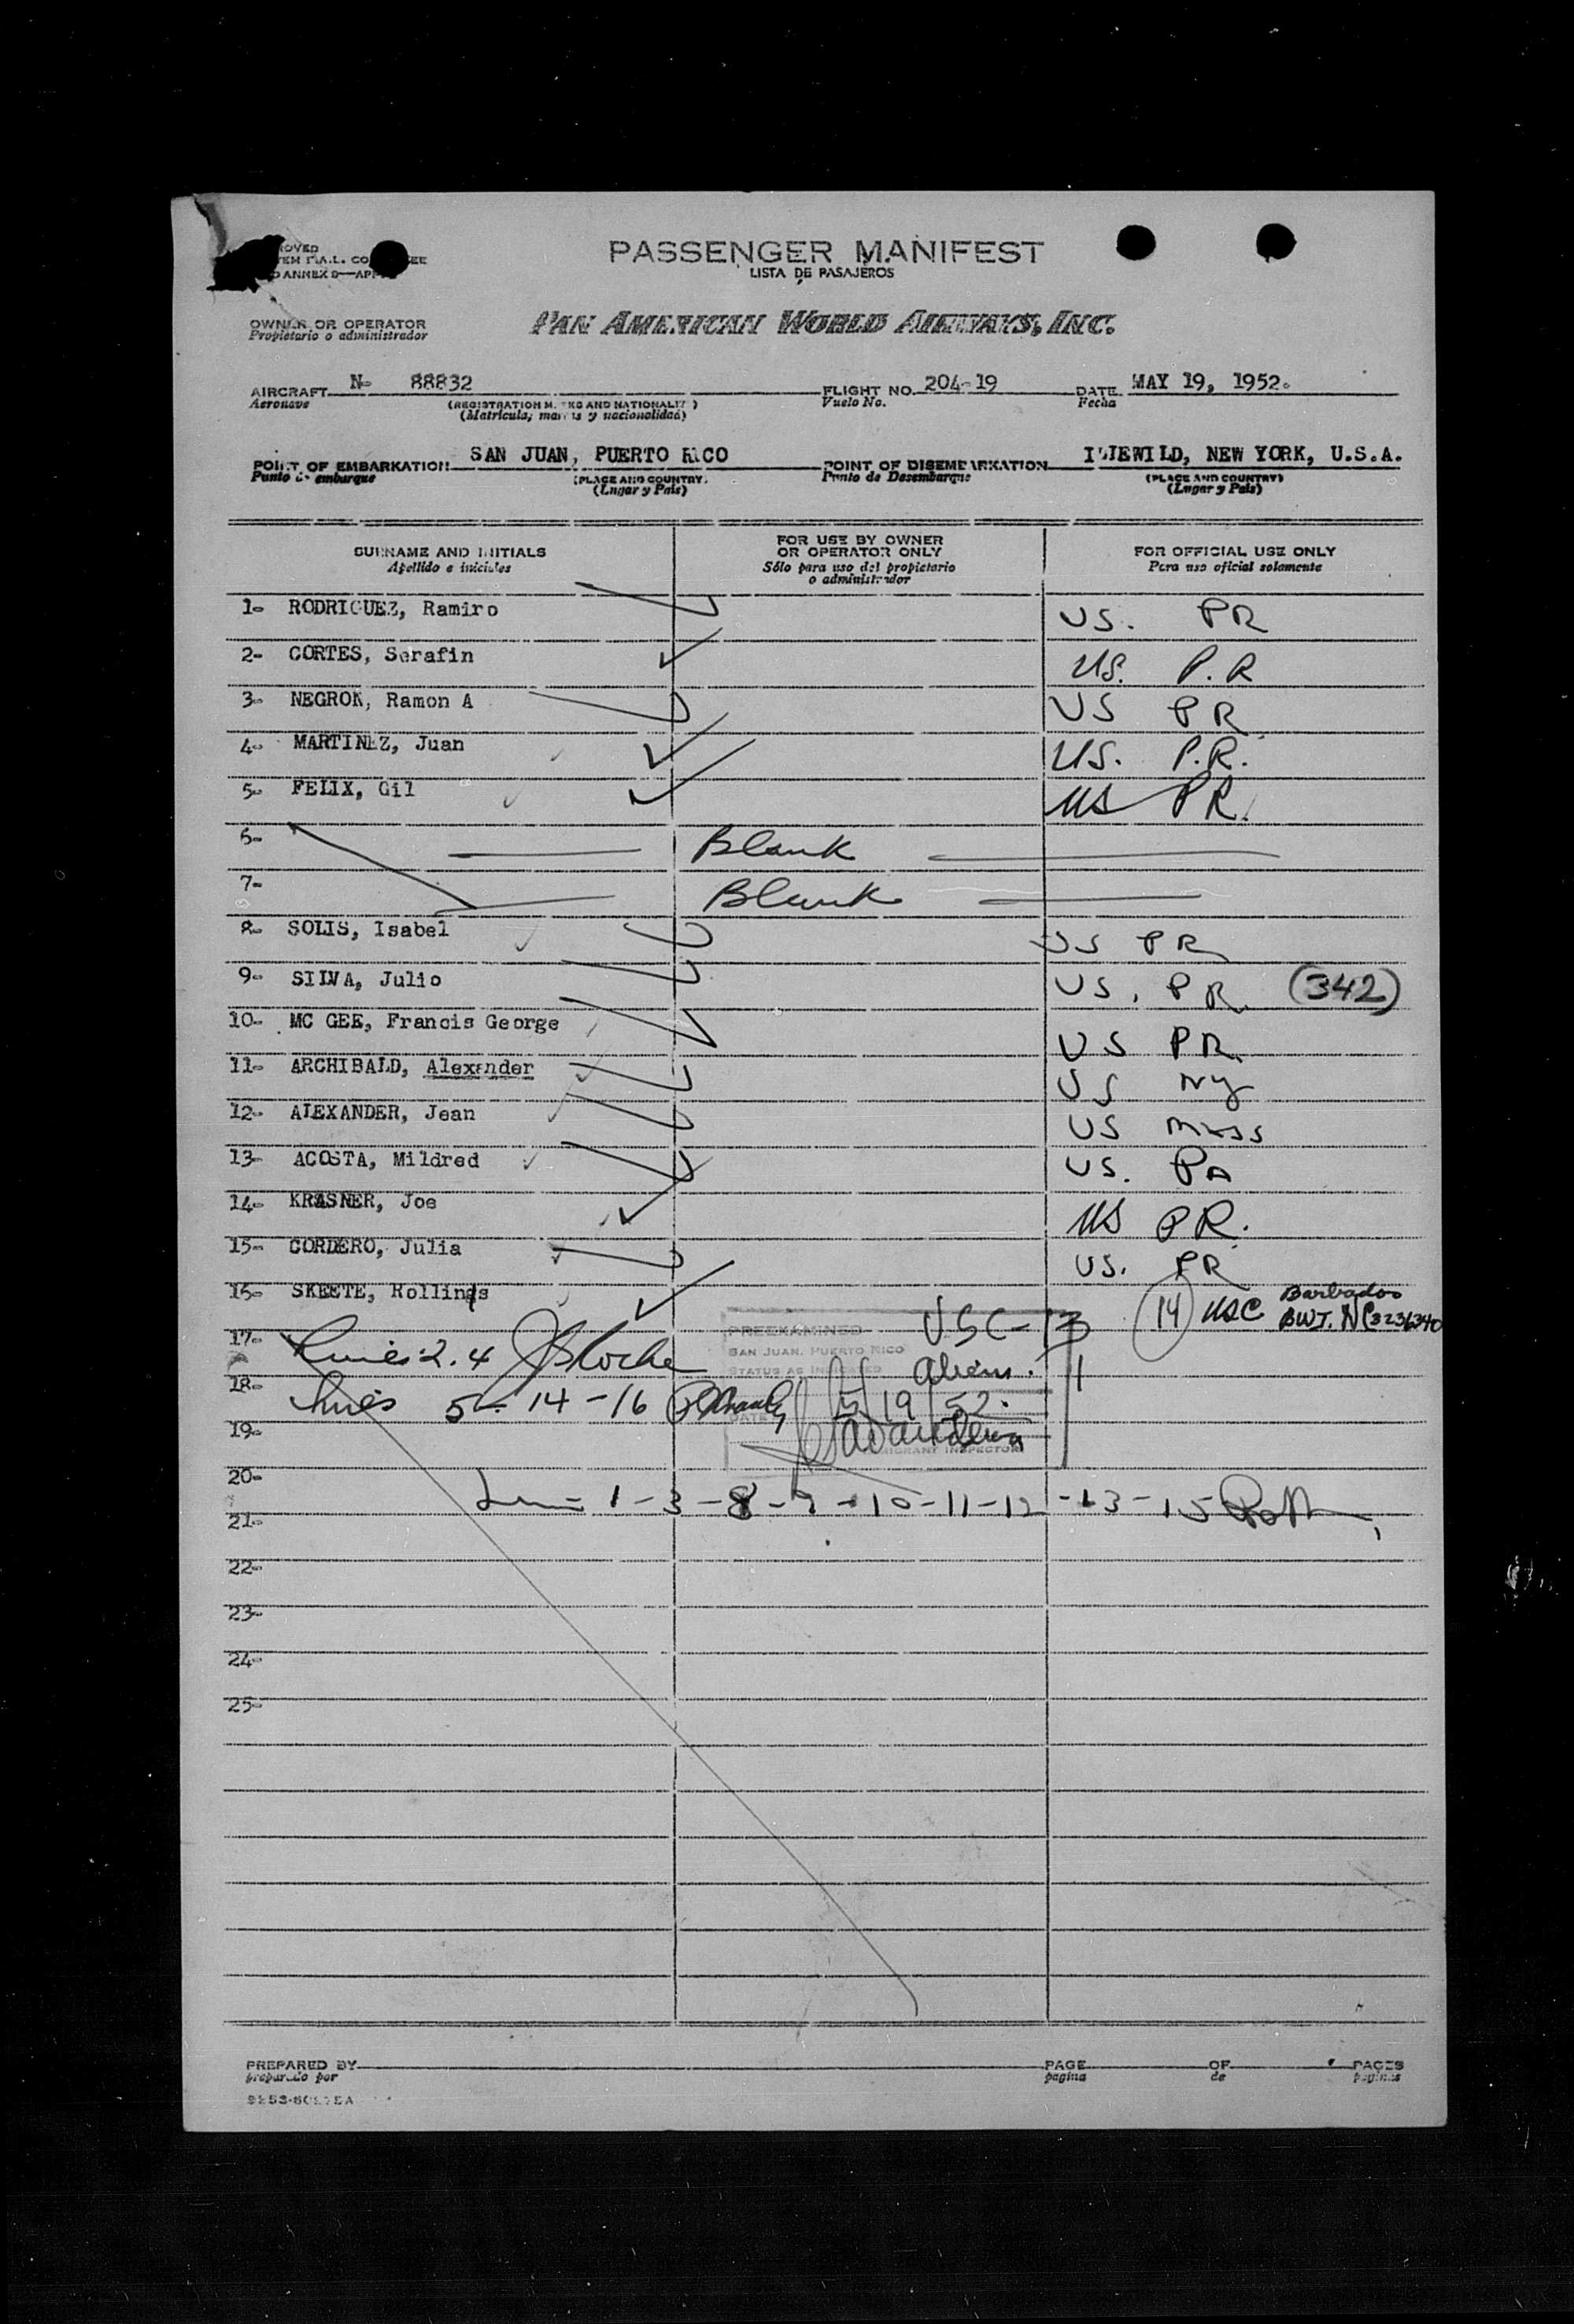 PASSENGER MANIFEST
LISTA DE PASAJEROS
ANNEX 9—
OWNER OR OPERATOR
Propietario o administrador
PAN AMERICAN WORLD AIRWAYS, INC.
AIRCRAFT N- 88832 FLIGHT NO. 204-19 DATE MAY 19, 1952.
Aeronave (REGISTRATION MARKS AND NATIONALITY) Vuelo No. Fecha
(Matricula, marcas y nacionalidad)
POINT OF EMBARKATION SAN JUAN, PUERTO RICO POINT OF DISEMBARKATION IDLEWILD, NEW YORK, U.S.A.
Punto de embarque (PLACE AND COUNTRY) Punto de Desembarque (PLACE AND COUNTRY)
(Lugar y País) (Lugar y País)
SURNAME AND INITIALS FOR USE BY OWNER OR OPERATOR ONLY FOR OFFICIAL USE ONLY
Apellido e iniciales Sólo para uso del propietario o administrador Para uso oficial solamente
1- RODRIGUEZ, Ramiro US. PR
2- CORTES, Serafin US. P.R
3- NEGRON, Ramon A US PR
4- MARTINEZ, Juan US. P.R.
5- FELIX, Gil US PR.
6- Blank
7- Blank
8- SOLIS, Isabel US PR
9- SILVA, Julio US, PR. (342)
10- MC GEE, Francis George US PR.
11- ARCHIBALD, Alexander US NY
12- ALEXANDER, Jean US Mass
13- ACOSTA, Mildred US. PA
14- KRASNER, Joe US PR.
15- CORDERO, Julia US. PR
16- SKEETE, Rollings (14) USC Barbados
BWI. NC3236340
PREEXAMINED USC-13
SAN JUAN, PUERTO RICO
STATUS AS INDICATED Aliens. 1
17- Lines 2.4
18- Lines 5- 14-16 5/19/52.
DATE
19- IMMIGRANT INSPECTOR
20-
Line 1-3-8-9-10-11-12-13-15
21-
22-
23-
24-
25-
PREPARED BY PAGE OF PAGES
preparado por pagina de paginas